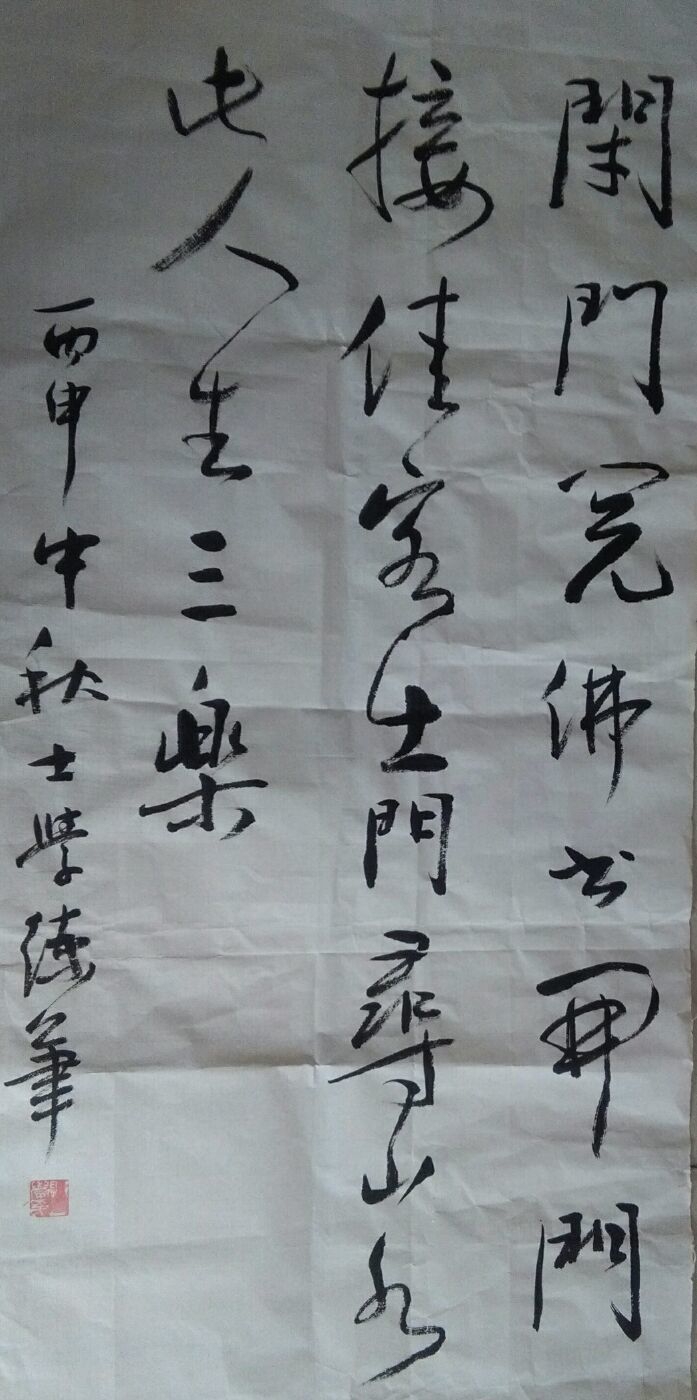 閉門閱佛書開門
接佳客出門尋山水
此人生三樂
丙申中秋士學德筆